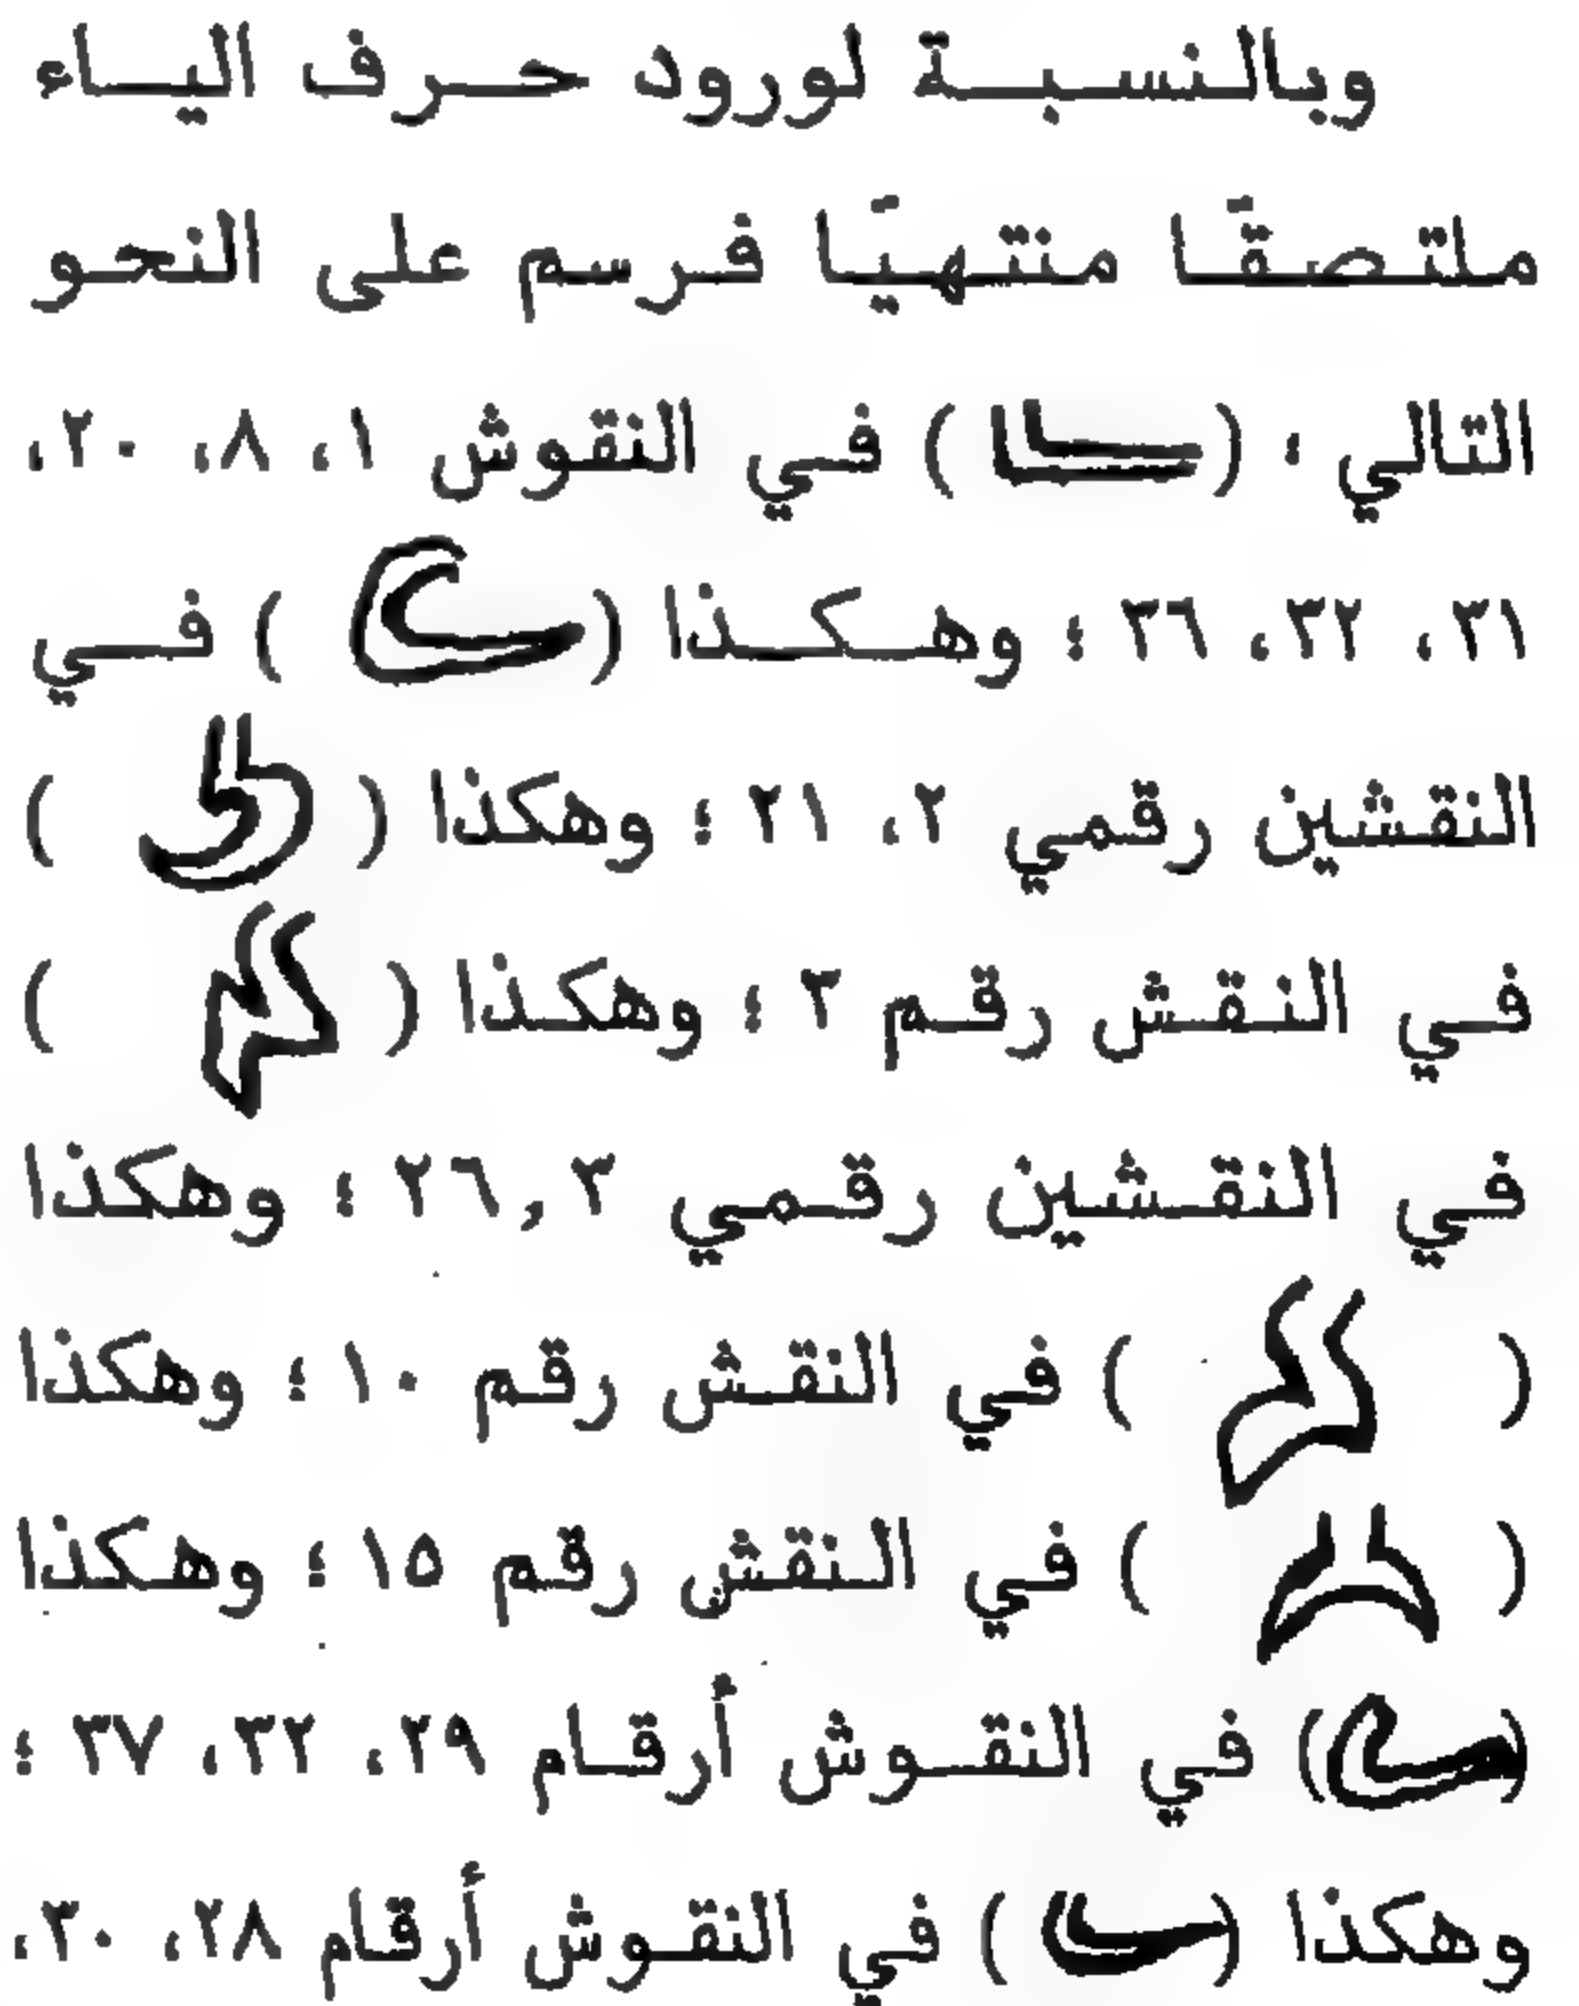 وبالنسبة لورود حرف الياء
ملتصقًا منتهيًا فرسم على النحو
التالي ؛ ( ) في النقوش ١، ٨، ٢٠،
٢١، ٣٢، ٣٦ ؛ وهكذا ( ) في
النقشين رقمي ٢، ٢١ ؛ وهكذا ( )
في النقش رقم ٣ ؛ وهكذا ( )
في النقشين رقمي ٣,٢٦ ؛ وهكذا
( ) في النقش رقم ١٠ ؛ وهكذا
( ) في النقش رقم ١٥ ؛ وهكذا
( ) في النقوش أرقام ٢٩، ٣٢، ٣٧ ؛
وهكذا ( ) في النقوش أرقام ٢٨، ٣٠،